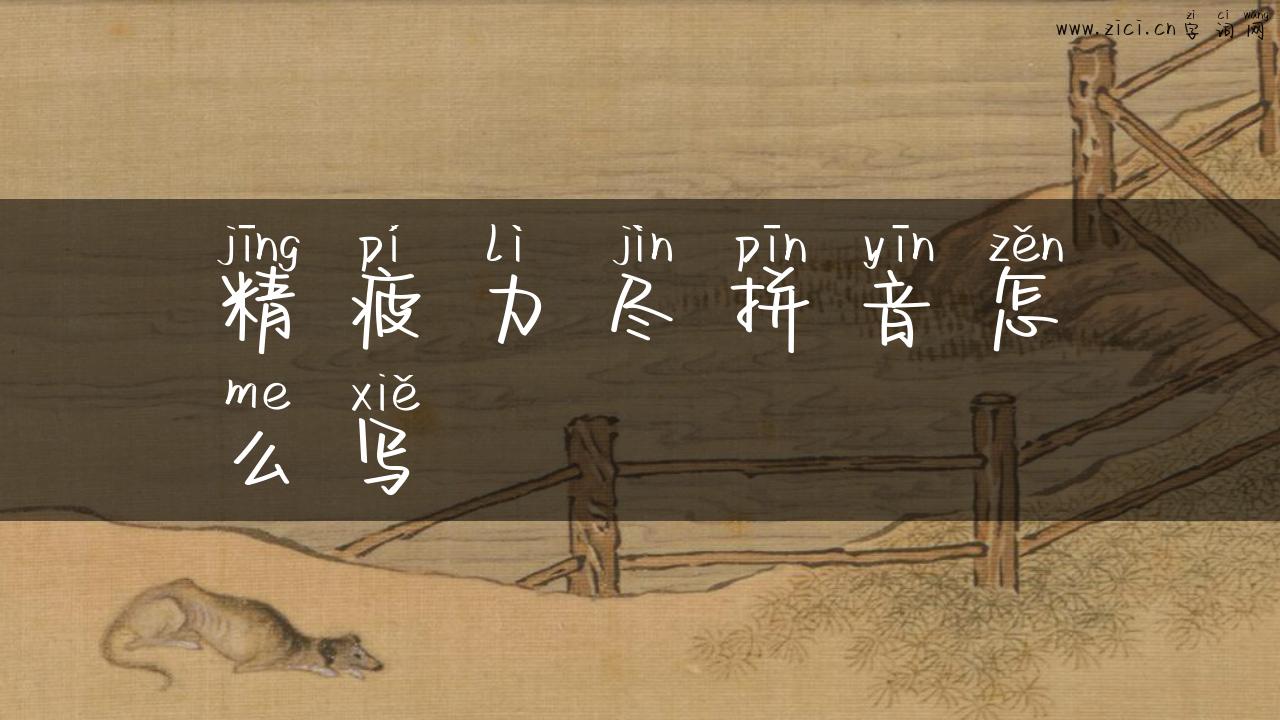 zì cí wǎng
www.zici.cn 字词网
jīng pí lì jìn pīn yīn zěn
精疲力尽拼音怎
me xiě
么写